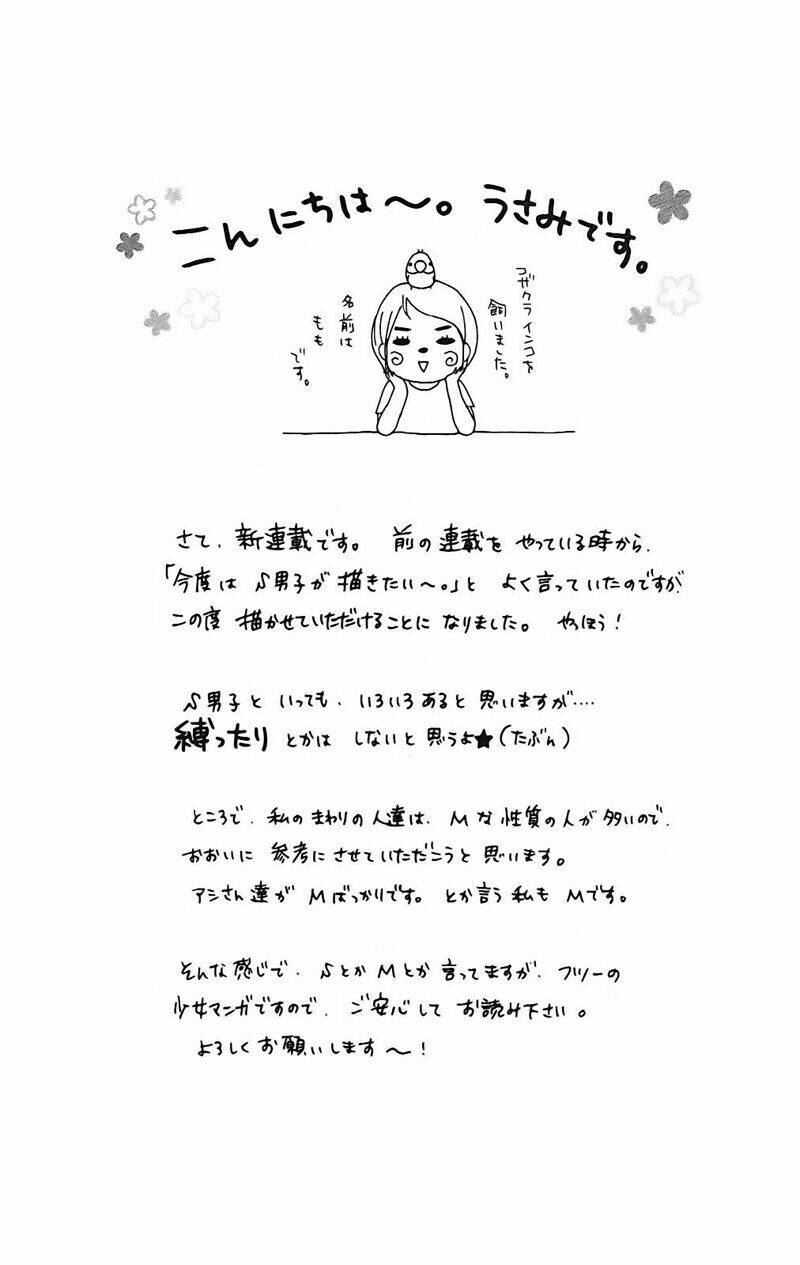 こんにちは〜。うさみです。
コザクラインコを
飼いました。
名前は
もも
です。
さて、新連載です。 前の連載を やっている時から、
「今度は S男子が 描きたい〜。」と よく言っていたのですが、
この度 描かせていただけることに なりました。 やっほう!
S男子と いっても、いろいろあると 思いますが‥‥
縛ったり とかは しないと 思うよ★(たぶん)
ところで、私のまわりの人達は、Mな性質の人が多いので、
おおいに 参考にさせていただこうと思います。
アシさん達が Mばっかりです。とか言う私も Mです。
そんな感じで、SとかMとか言ってますが、フツーの
少女マンガですので、ご安心して お読み下さい。
よろしくお願いします〜!